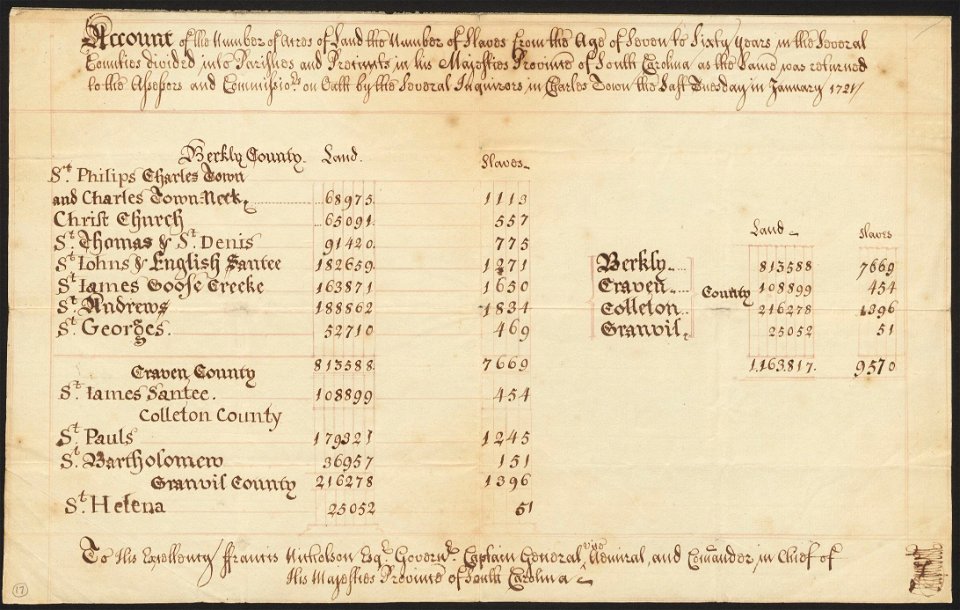 Account of the Number of Acres of Land the Number of Slaves from the Age of Seven to Sixty Years in the Several
Counties divided into Parishes and Precincts in his Majesties Province of South Carolina as the same was returned
to the Assessors and Commissio.rs on Oath by the Several Inquirors in Charles Town the Last Tuesday in January 1721/
Berkly County. Land. Slaves
St. Philips Charles Town
and Charles Town Neck 68975 1113
Christ Church 65091 557
St. Thomas & St. Denis 91420 775
St. Iohns & English Santee 182659 1271
St. Iames Goose Creeke 163871 1650
St. Andrews 188862 1834
St. Georges. 52710 469
813588 7669
Craven County
St. Iames Santee. 108899 454
Colleton County
St. Pauls 179321 1245
St. Bartholomew 36957 151
Granvil County 216278 1396
St. Helena 25052 51
Land Slaves
Berkly 813588 7669
Craven County 108899 454
Colleton 216278 1396
Granvil 25052 51
1,163,817. 9570
To His Excellency Francis Nicholson Esq.r Govern.r Captain General, Vice Admiral, and Comander in Chief of
His Majesties Province of South Carolina
17